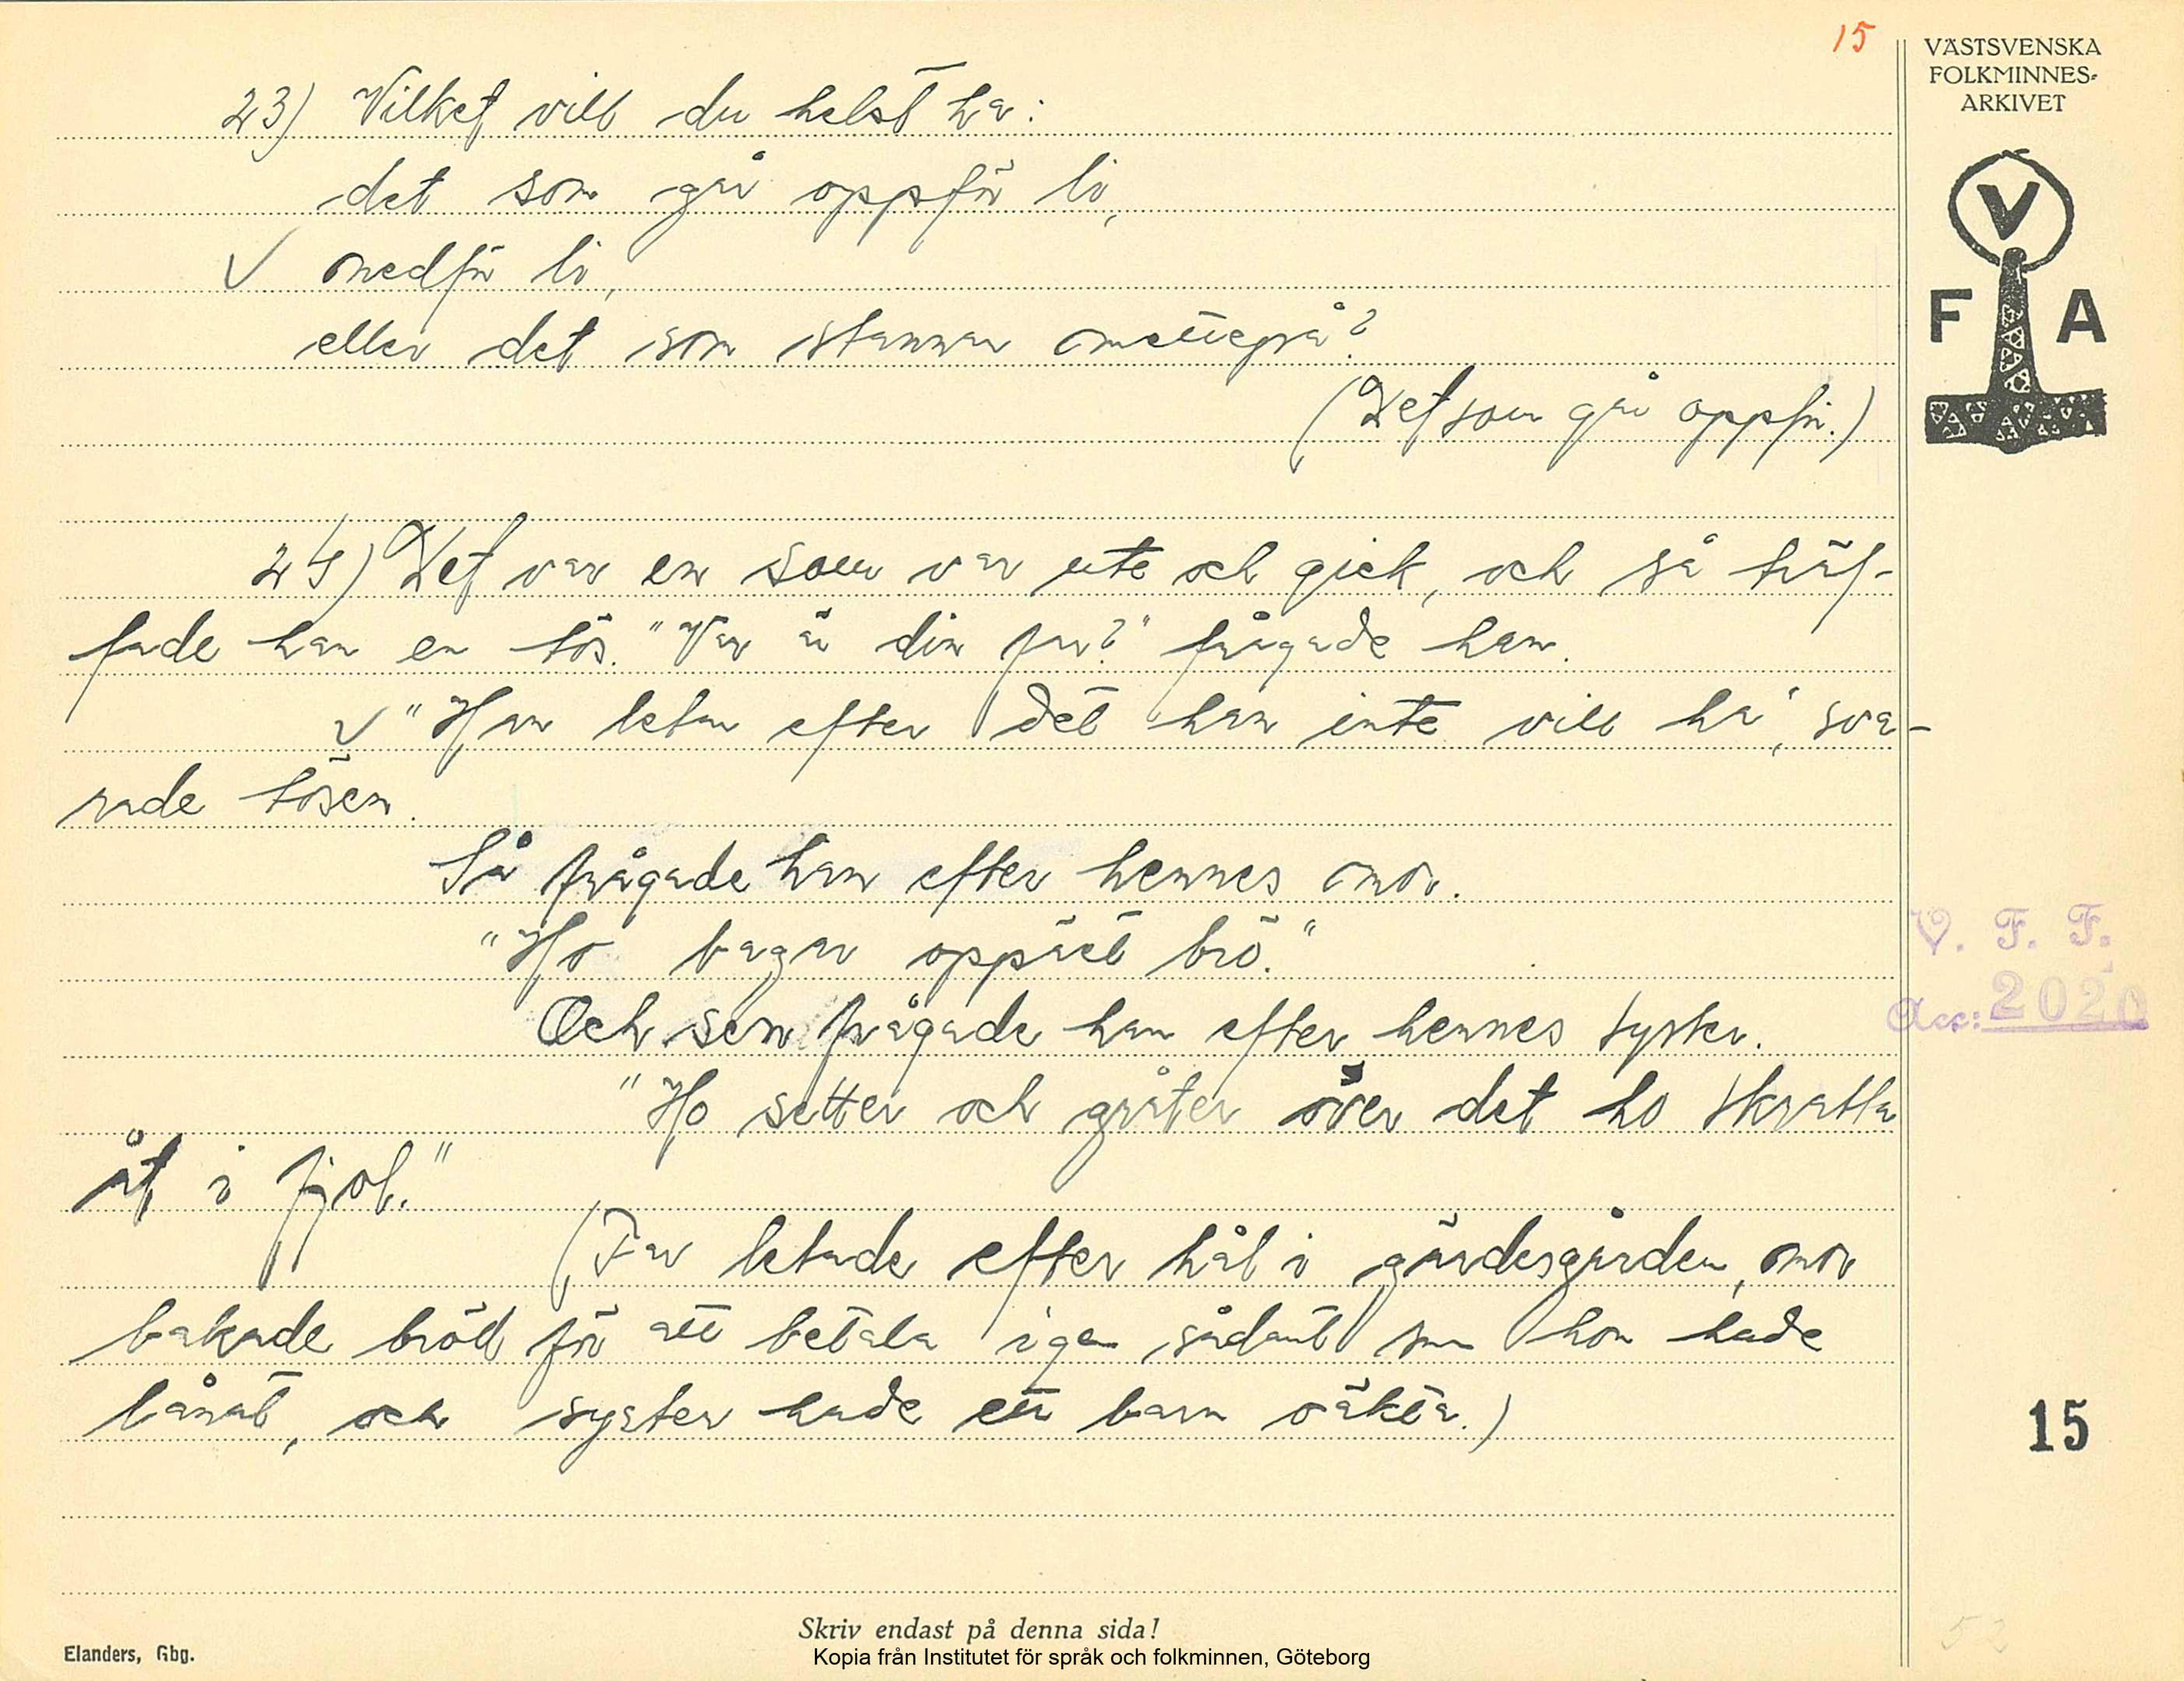 15
VÄSTSVENSKA
FOLKMINNES-
ARKIVET
V
F A
23) Vilket vill du helst ha:
det som går oppför li,
nedför li,
eller det som stannar
(Det som går oppför.)
24) Det var en som var ute och gick, och så träf-
fade han en tös. "Var är din far?" frågade han.
"Han letar efter det han inte vill ha", sva-
rade tösen.
Så frågade han efter hennes mor.
"Ho bagar oppätt brö."
Och sen frågade han efter hennes syster.
"Ho setter och gråter över det ho skratta
åt i fjol."
(Far letade efter hål i gärdesgården, mor
bakade bröd för att betala igen sådant som hon hade
lånat, och syster hade ett barn oäkta.)
V. F. F.
Acc: 2020
15
Skriv endast på denna sida!
Elanders, Gbg.
Kopia från Institutet för språk och folkminnen, Göteborg